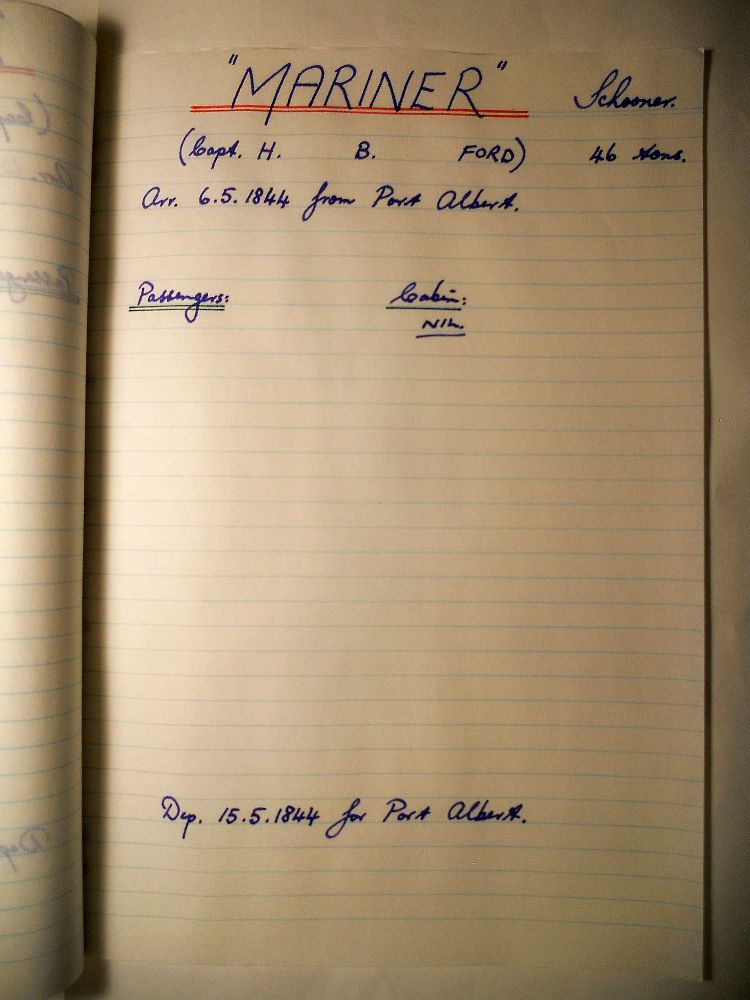 "MARINER" Schooner.
(Capt. H. B. FORD) 46 tons.
Arr. 6.5.1844 from Port Albert.
Passengers: Cabin:
NIL
Dep. 15.5.1844 for Port Albert.